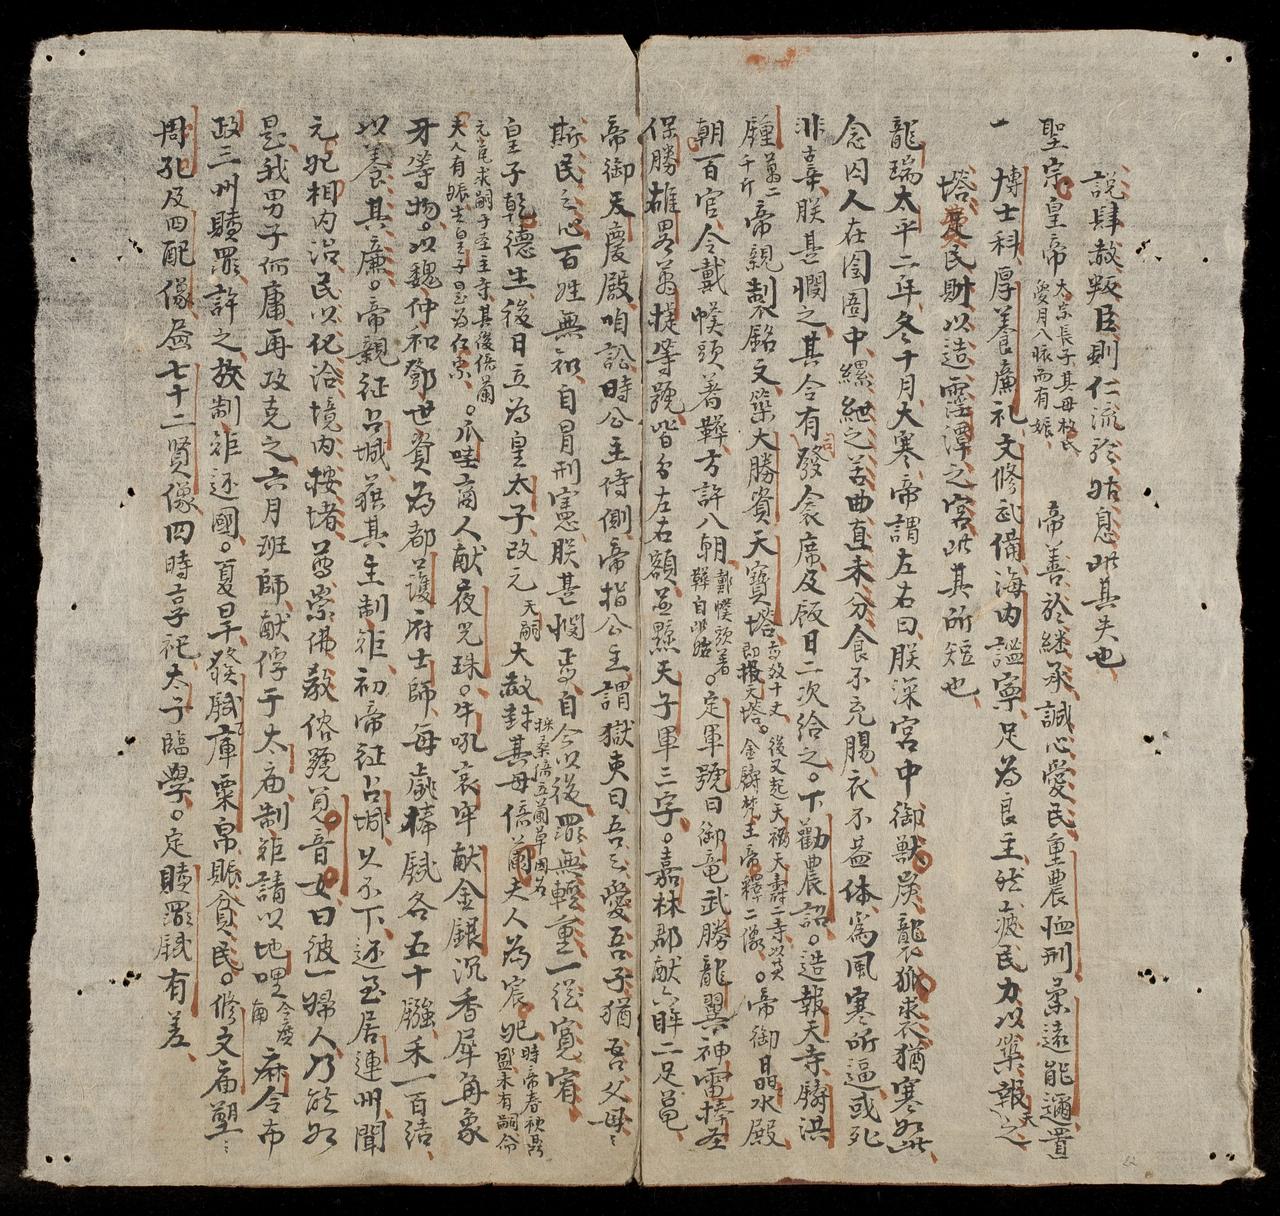 說肆赦叛臣則仁流於姑息此其失也
聖宗皇帝 太宗長子其母枚氏愛月入脹而有娠 帝善於継承誠心愛民重農恤刑柔遠能邇置
一博士科厚養廉礼文修武備海内謐寧足為良主然疲民力以築報天之
塔𢊍民財以造霪潭之宮此其所短也
龍瑞太平二年冬十月大寒帝謂左右曰朕深宮中御獸炭龍衣狐裘猶寒如此
念囚人在囹圄中縲紲之苦曲直未分食不充腸衣不盖体爲風寒所逼或死
非辜朕甚憫之其令有司發衾席及飯日二次給之。下勸農詔。造報天寺鑄洪
鍾萬二千斤帝親制銘文築大勝資天寶塔高數十丈即報天塔。後又起天福天壽二寺以黃金鑄梵王帝釋二像。帝御晶水殿
朝百官令戴幞頭著鞾方許入朝戴幞頭著鞾自此始。定軍號曰御竜武勝龍翼神雷捧圣
保勝雄畧萬捷等號皆分左右額並黥天子軍三字。嘉林郡献六眸二足黽
帝御天慶殿咱訟時公主侍側帝指公主謂獄吏曰吾之愛吾子猶吾父母〻
斯民之心百姓無知自冐刑憲朕甚憫焉自今以後罪無輕重一從寬宥
皇子乾德生後日立為皇太子改元天嗣大赦封其母倚蘭夫人為宸妃時帝春秋髙盛未有嗣命
元官求嗣于圣主寺其後倚蘭夫人有娠生皇子是為仁宗。爪哇商人献夜光珠。牛吼哀牢献金銀沉香犀角象
牙等物。以魏仲和鄧世資為都護府士師每歲俸賦各五十鏹禾一百結
以養其廉。帝親征占城獲其主制矩初帝征占城以不下还至居連州聞
元妃相内治民以化洽境内按堵尊崇佛教俗號見音女曰彼一婦人乃能如
是我男子何庸再攻克之六月班師献俘于太庙制矩請以地哩今廣南麻令布
政三州贖罪許之放制矩还國。夏旱發賦庫粟帛賑貧民。修文庙塑〻
周孔及四配像画七十二賢像四時享祀太子臨學。定贖罪賦有差